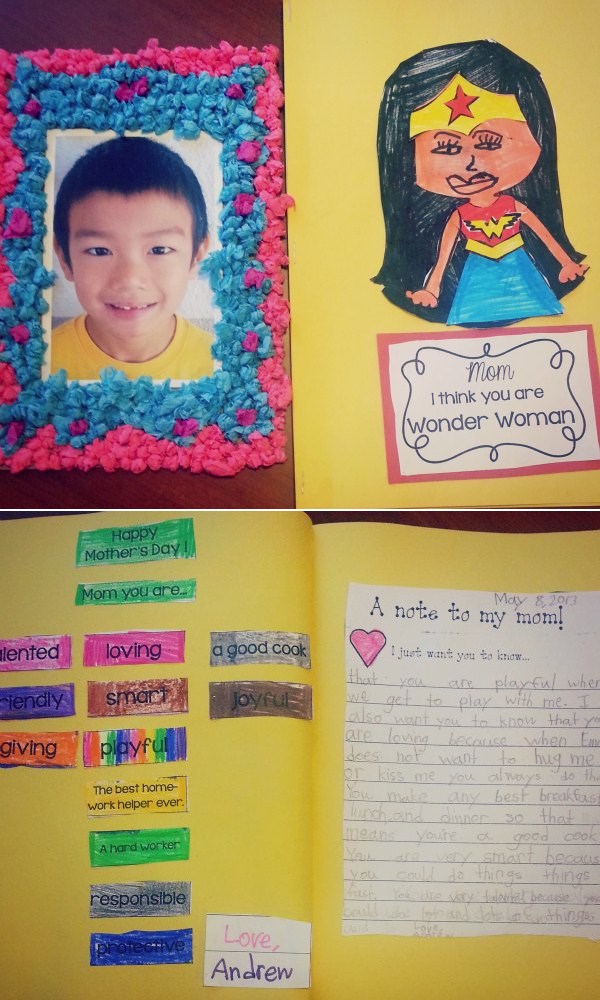 W
Mom
I think you are
Wonder Woman
Happy
Mother's Day!
Mom you are...
lented
loving
a good cook
iendly
smart
joyful
giving
playful
The best home-
work helper ever.
A hard worker
responsible
protective
Love,
Andrew
May 8, 2013
A note to my mom!
I just want you to know...
that you are playful when
we get to play with me. I
also want you to know that yo
are loving because when Em
does not want to hug me
or kiss me you always do th
You make any best breakfas
lunch, and dinner so that
means you're a good cook
You are very smart becaus
you could do things things
fast. You are very talented because you
could do lot and lots of things
Love,